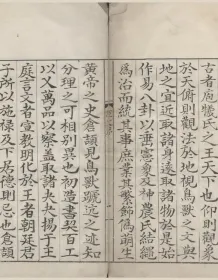 古者庖犧氏之王天下也仰則觀象
於天俯則觀法於地視鳥獸之文與
地之宜近取諸身遠取諸物於是始
作易八卦以垂憲象及神農氏結繩
為治而統其事庶業其繁飾僞萌生
黃帝之史倉頡見鳥獸蹏迒之迹知
分理之可相別異也初造書契百工
以乂萬品以察蓋取諸夬夬揚于王
庭言文者宣教明化於王者朝廷君
子所以施祿及下居德則忌也倉頡